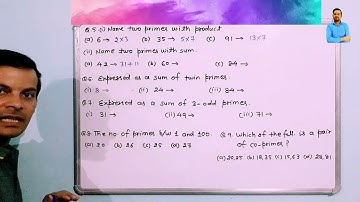 Q.5 (i) Name two primes with product
(a) 6 → 2×3 (b) 35 → 5×7 (c) 91 → 13×7
(ii) Name two primes with sum.
(a) 42 → 31+11 (b) 60 → (c) 84 →
Q.6. Expressed as a sum of twin primes.
(i) 8 → (ii) 24 → (iii) 84 →
Q.7. Expressed as a sum of 3-odd primes.
(i) 31 → (ii) 49 → (iii) 71 →
Q.8. The no. of primes b/w 1 and 100.
(a) 20 (b) 26 (c) 25 (d) 27
Q.9. Which of the foll. is a pair
of co-primes?
(a) 20,25 (b) 18,35 (c) 15,63 (d) 28,81